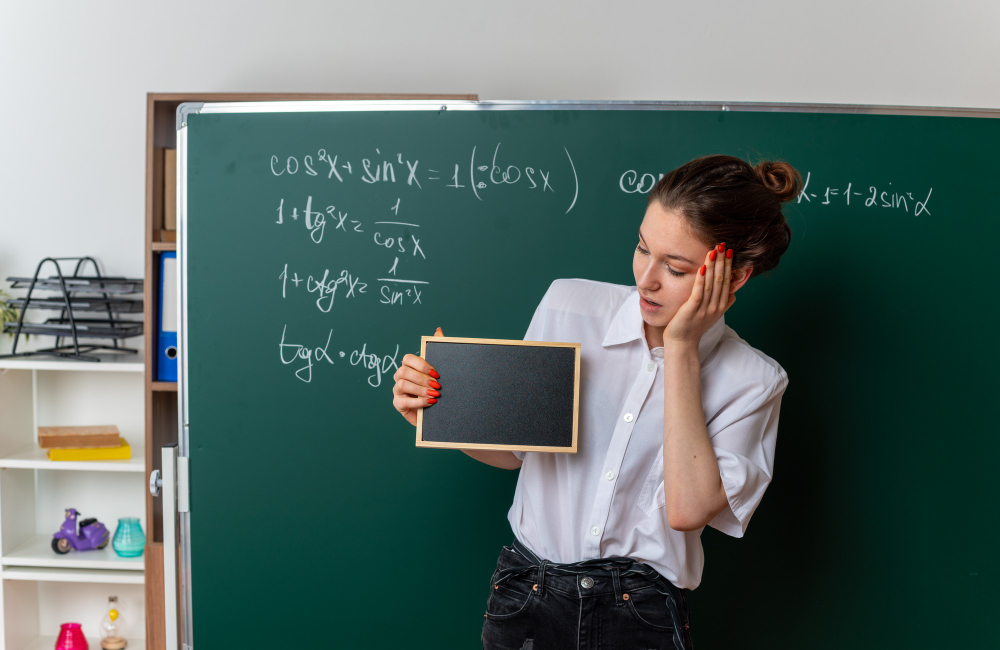 cos²x + sin²x = 1 (: cosx)
1 + tg²x = 1/cosx
1 + ctg²x = 1/sin²x
tgα · ctgα
α - 1 = 1 - 2sin²α